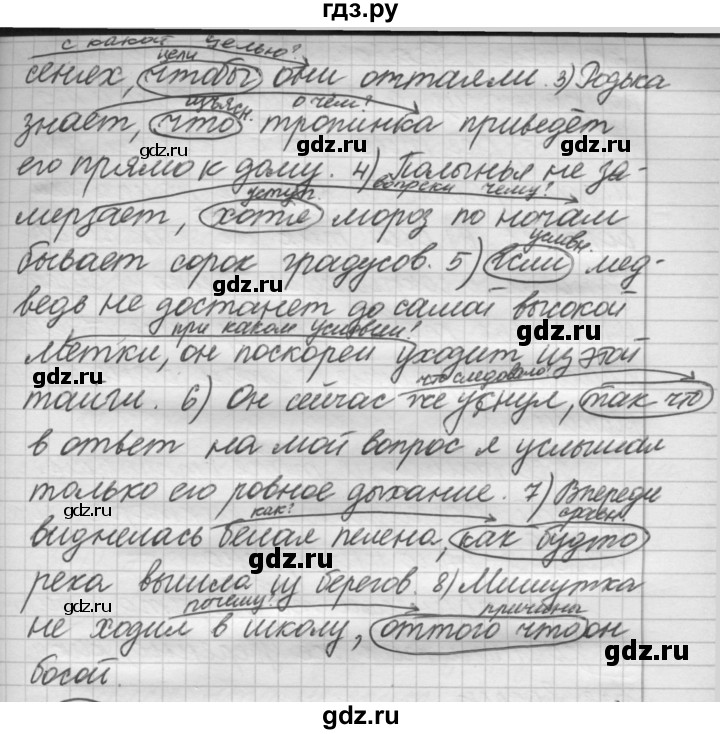 гдз.ру
с какой целью?
цели
сенях, чтобы они оттаяли. 3) Родька
изъясн. о чём?
знает, что тропинка приведёт
gdz.ru gdz.ru
его прямо к дому. 4) Полынья не за-
уступ. вопреки чему?
мерзает, хотя мороз по ночам
условн.
бывает сорок градусов. 5) Если мед-
gdz.ru
ведь не достанет до самой высокой
при каком условии?
gdz.ru
метки, он поскорей уходит из этой
gdz.ru
что следовало?
тайги. 6) Он сейчас же уснул, так что
в ответ на мой вопрос я услышал
только его ровное дыхание. 7) Впереди
gdz.ru
как? сравн.
виднелась белая пелена, как будто
gdz.ru
река вышла из берегов. 8) Мишутка
gdz.ru
почему? причины
не ходил в школу, оттого что он
gdz.ru
босой.
gdz.ru